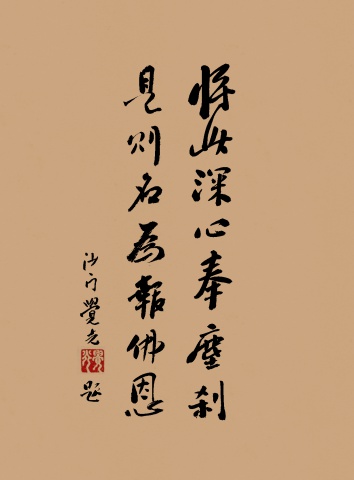 將此深心奉塵刹
是則名為報佛恩
沙門覺光
題